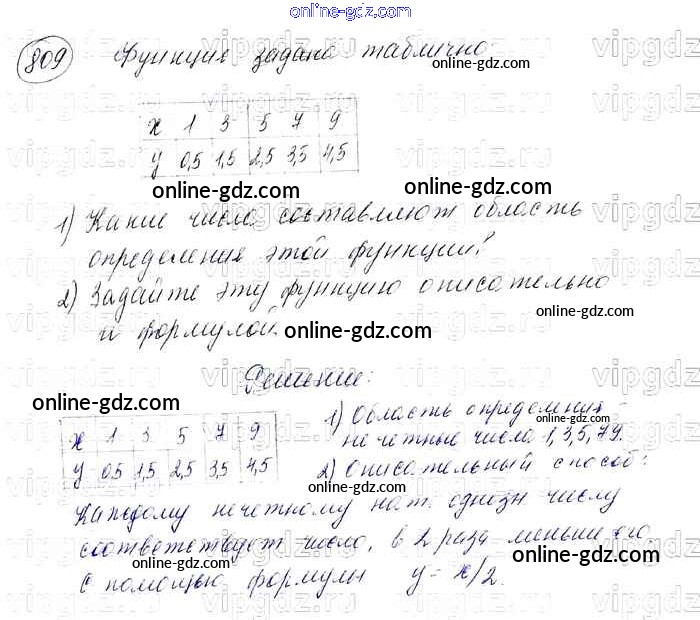 online-gdz.com
809 Функция задана таблично
online-gdz.com
х 1 3 5 7 9
у 0,5 1,5 2,5 3,5 4,5
online-gdz.com
1) Какие числа составляют область
определения этой функции?
2) Задайте эту функцию описательно
и формулой.
online-gdz.com
Решение:
online-gdz.com
х 1 3 5 7 9
у 0,5 1,5 2,5 3,5 4,5
1) Область определения
нечетные числа 1,3,5,7,9.
2) Описательный способ:
online-gdz.com
Каждому нечетному нат. однозн числу
соответствует число, в 2 раза меньше его.
online-gdz.com
С помощью формулы у = х/2.